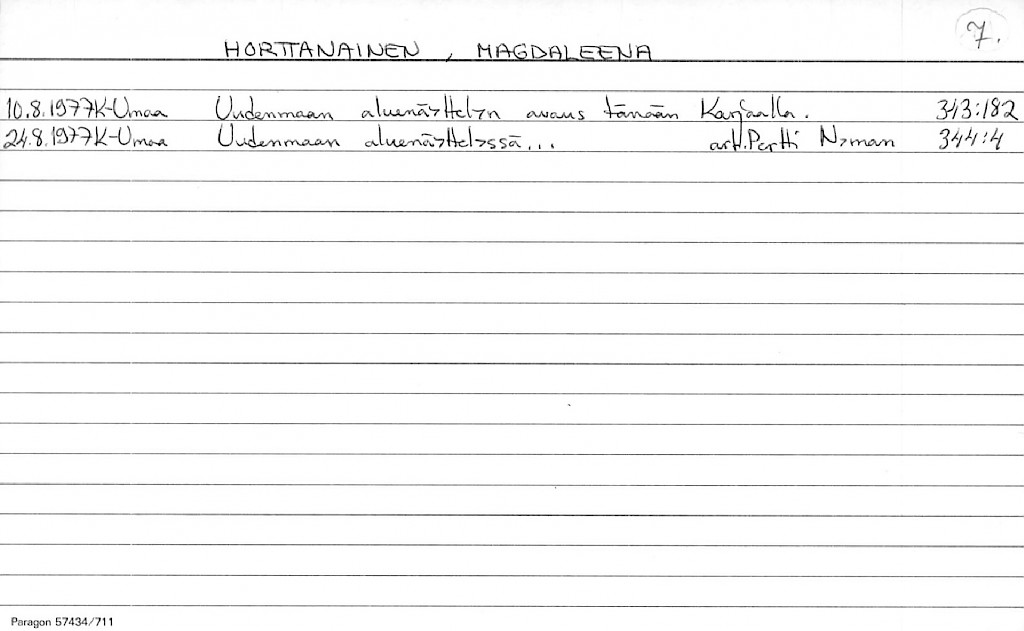 7.
HORTTANAINEN, MAGDALEENA
10.8.1977 K-Umaa Uudenmaan aluenäyttelyn avaus tänään Karjaalla. 343:182
24.8.1977 K-Umaa Uudenmaan aluenäyttelyssä... art. Pertti Nyman 344:4
Paragon 57434/711